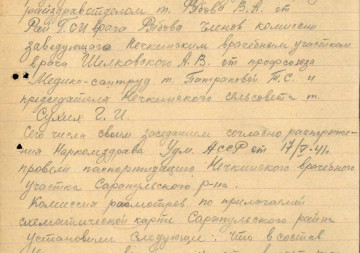 райздравотделом т. Зубова В.А. от
Рай ГСИ врача Зубова членов комиссии
заведующего Нечкинским врачебным участком
врача Шилковского А.В. от профсоюза
Медико-сантруд т. Патраковой Т.С. и
председателя Нечкинского сельсовета т.
Сухих Г.И.
Сего числа своим заседанием согласно распоряже-
ния Наркомздрава Удм. АССР от 17/V-41г.
провели паспортизацию Нечкинского врачебного
участка Сарапульского р-на.
Комиссия рассмотрев по прилагаемой
схематической карте Сарапульского района
установили следующие: Что в состав